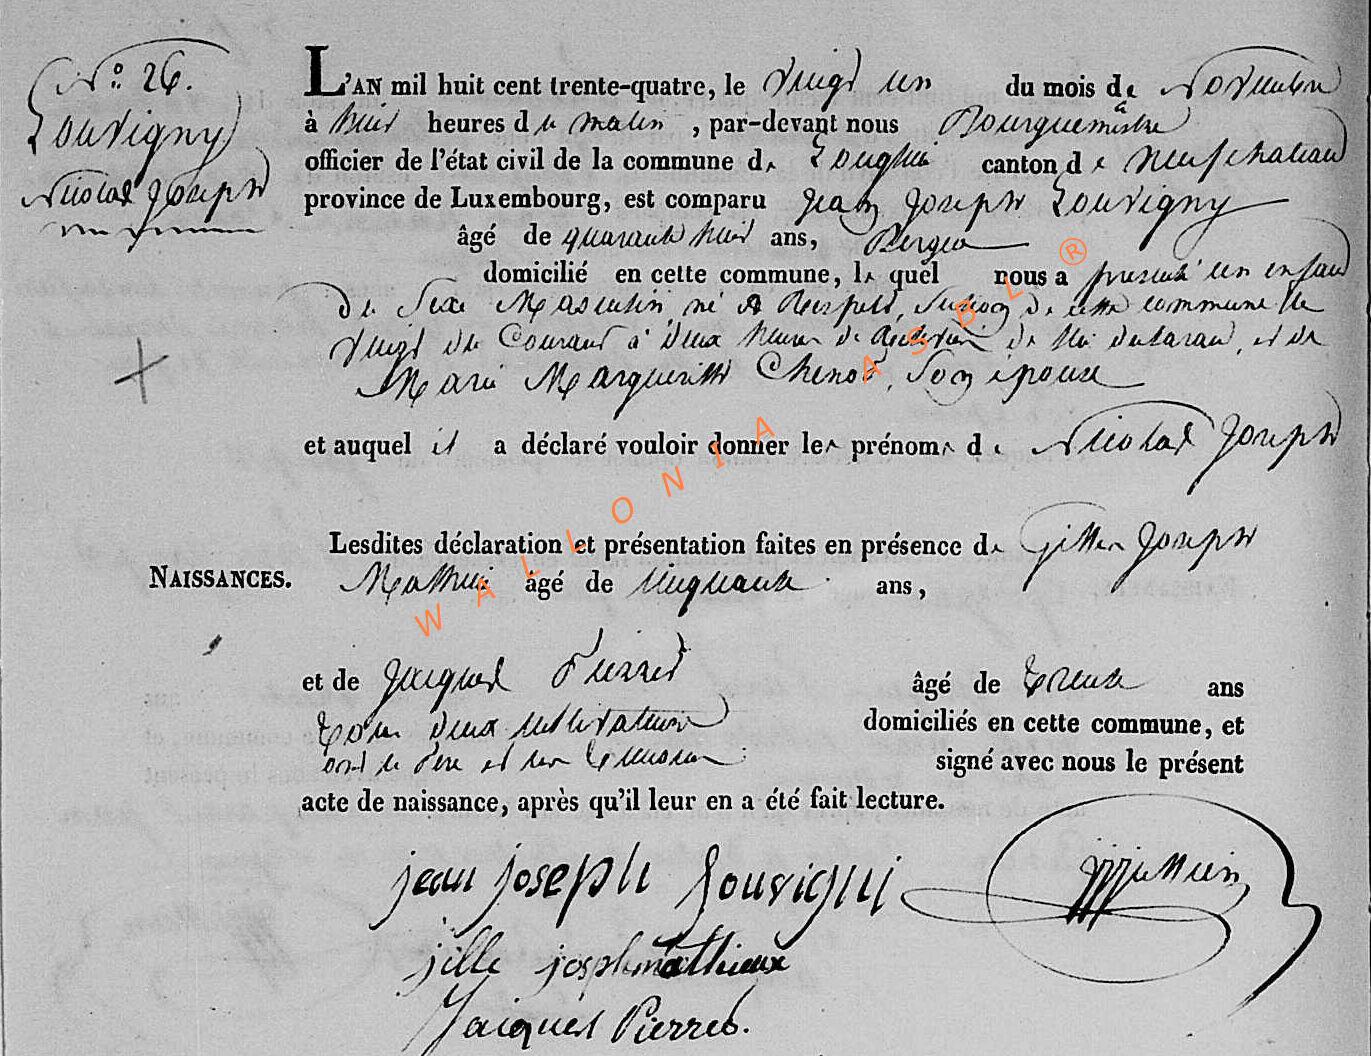 N.° 26.
Louvigny
Nicolas Joseph
L'AN mil huit cent trente-quatre, le vingt un du mois de Novembre
à huit heures du matin, par-devant nous Bourguemestre
officier de l'état civil de la commune de Longlier canton de Neufchateau
province de Luxembourg, est comparu Jean Joseph Louvigny
âgé de quarante huit ans, Berger
domicilié en cette commune, lequel nous a presenté un enfant
de Sexe Masculin né à Respelt, Section de cette commune le
vingt du Courant à deux heures de Relevée de lui declarant, et de
Marie Margueritte Chenot, Son épouse
et auquel il a déclaré vouloir donner les prénoms de Nicolas Joseph
Lesdites déclaration et présentation faites en présence de Gilles Joseph
NAISSANCES. Mathieu âgé de cinquante ans,
et de Jacques Pierret âgé de trente ans
tous deux cultivateurs domiciliés en cette commune, et
ont le Père et les temoins signé avec nous le présent
acte de naissance, après qu'il leur en a été fait lecture.
jean joseph Louvigni
jille joseph mathieux
Jacques Pierret.
WALLONIA ASBL ®